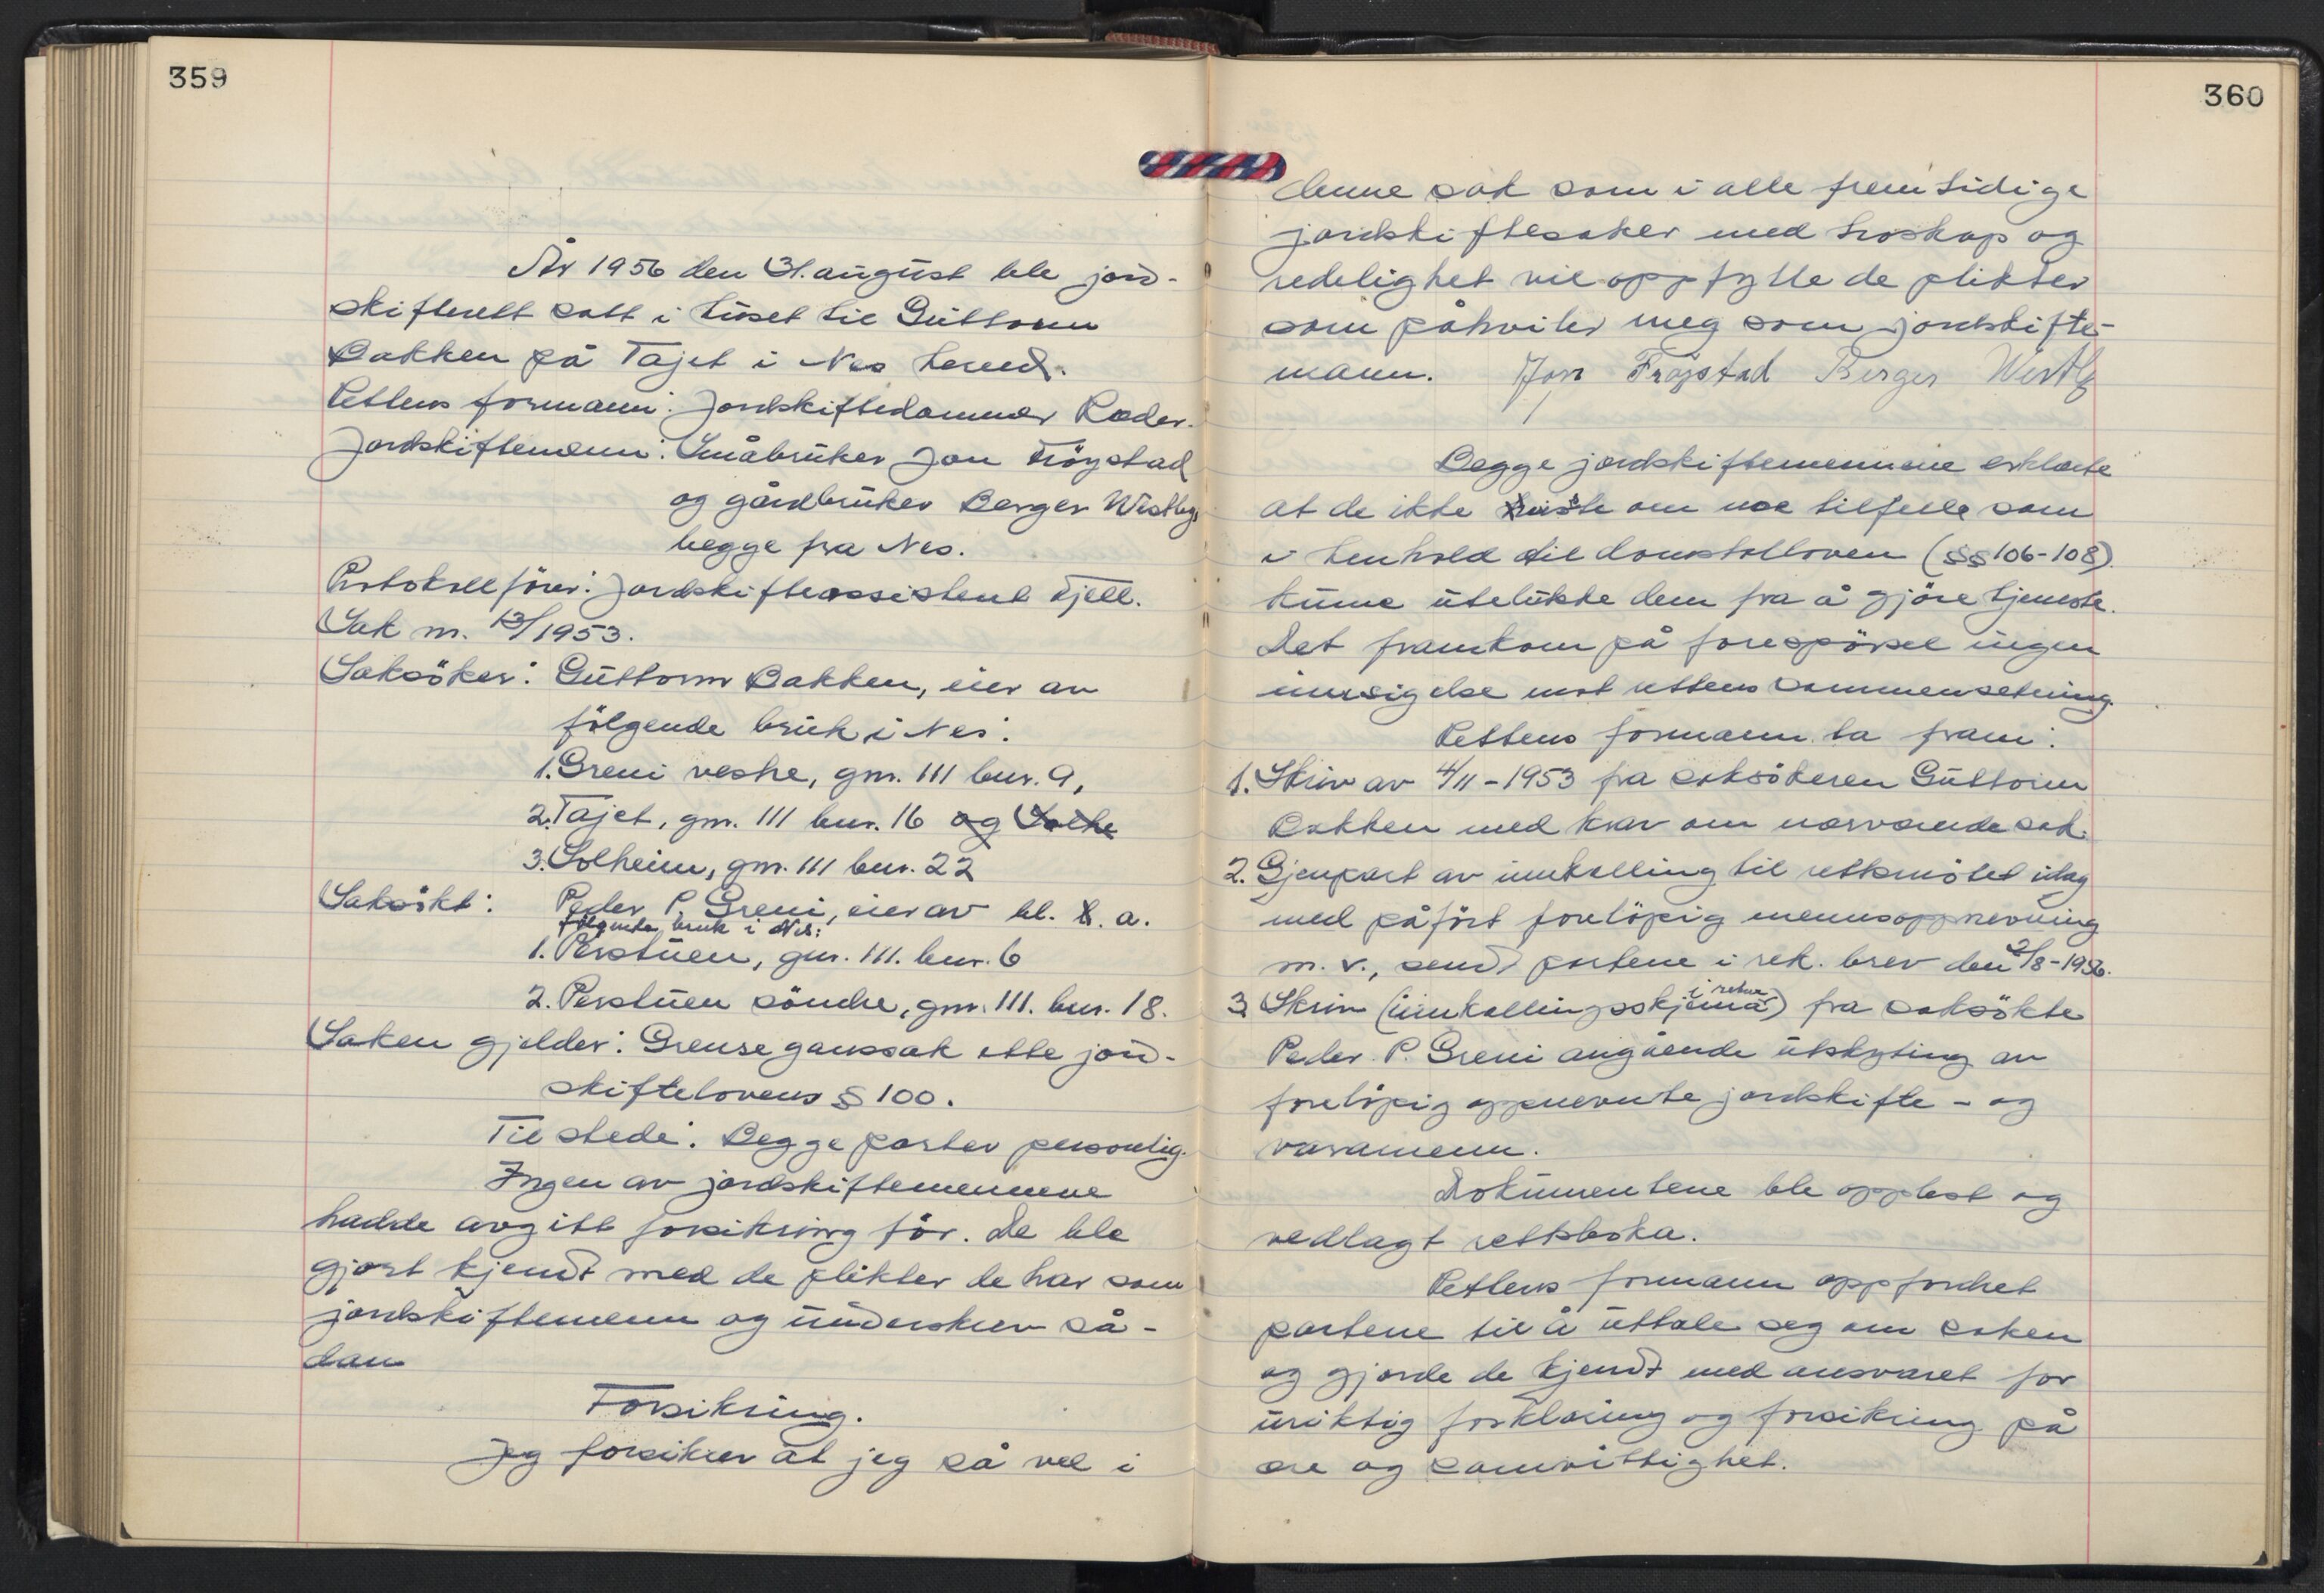 359
År 1956 den 31. august ble jord-
skifterett satt i huset til Guttorm
Bakken på Tajet i Nes herred.
Rettens formann: Jordskiftedommer Ræder.
Jordskiftemenn: Småbruker Jon Fröystad
og gårdbruker Berger Westby,
begge fra Nes.
Protokollförer: Jordskifteassistent Fjell.
Sak nr. 13/1953.
Saksöker: Guttorm Bakken, eier av
fölgende bruk i Nes:
1. Greni vestre, gnr. 111 bnr. 9,
2. Tajet, gnr. 111 bnr. 16 og Solhe
3. Solheim, gnr. 111 bnr. 22
Saksökt: Peder P. Greni, eier av bl. a.
fölgende bruk i Nes:
1. Perstuen, gnr. 111. bnr. 6
2. Perstuen söndre, gnr. 111. bnr. 18.
Saken gjelder: Grensegangssak etter jord-
skiftelovens § 100.
Til stede: Begge parter personlig.
Ingen av jordskiftemennene
hadde avgitt forsikring för. De ble
gjort kjendt med de plikter de har som
jordskiftemenn og underskrev så-
dan
Forsikring.
Jeg forsikrer at jeg så vel i
360
denne sak som i alle fremtidige
jordskiftesaker med troskap og
redelighet vil oppfylle de plikter
som påhviler meg som jordskifte-
mann. Jon Fröystad Berger Westby
Begge jordskiftemennene erklærte
at de ikke visste om noe tilfelle som
i henhold til domstolloven (§§ 106-108)
kunne utelukke dem fra å gjöre tjeneste.
Det framkom på forespörsel ingen
innsigelse mot rettens sammensetning.
Rettens formann la fram:
1. Skriv av 4/11-1953 fra saksökeren Guttorm
Bakken med krav om nærværende sak.
2. Gjenpart av innkalling til rettsmötet idag
med påfört foreløpig mennsoppnevning
m.v., sendt partene i rek. brev den 2/8-1956.
3. Skriv (innkallingsskjema i retur) fra saksökte
Peder P. Greni angående utskyting av
forelöpig oppnevnte jordskifte- og
varamenn.
Dokumentene ble opplest og
vedlagt rettsboka.
Rettens formann oppfordret
partene til å uttale seg om saken
og gjorde de kjendt med ansvaret for
uriktig forklaring og forsikring på
ære og samvittighet.